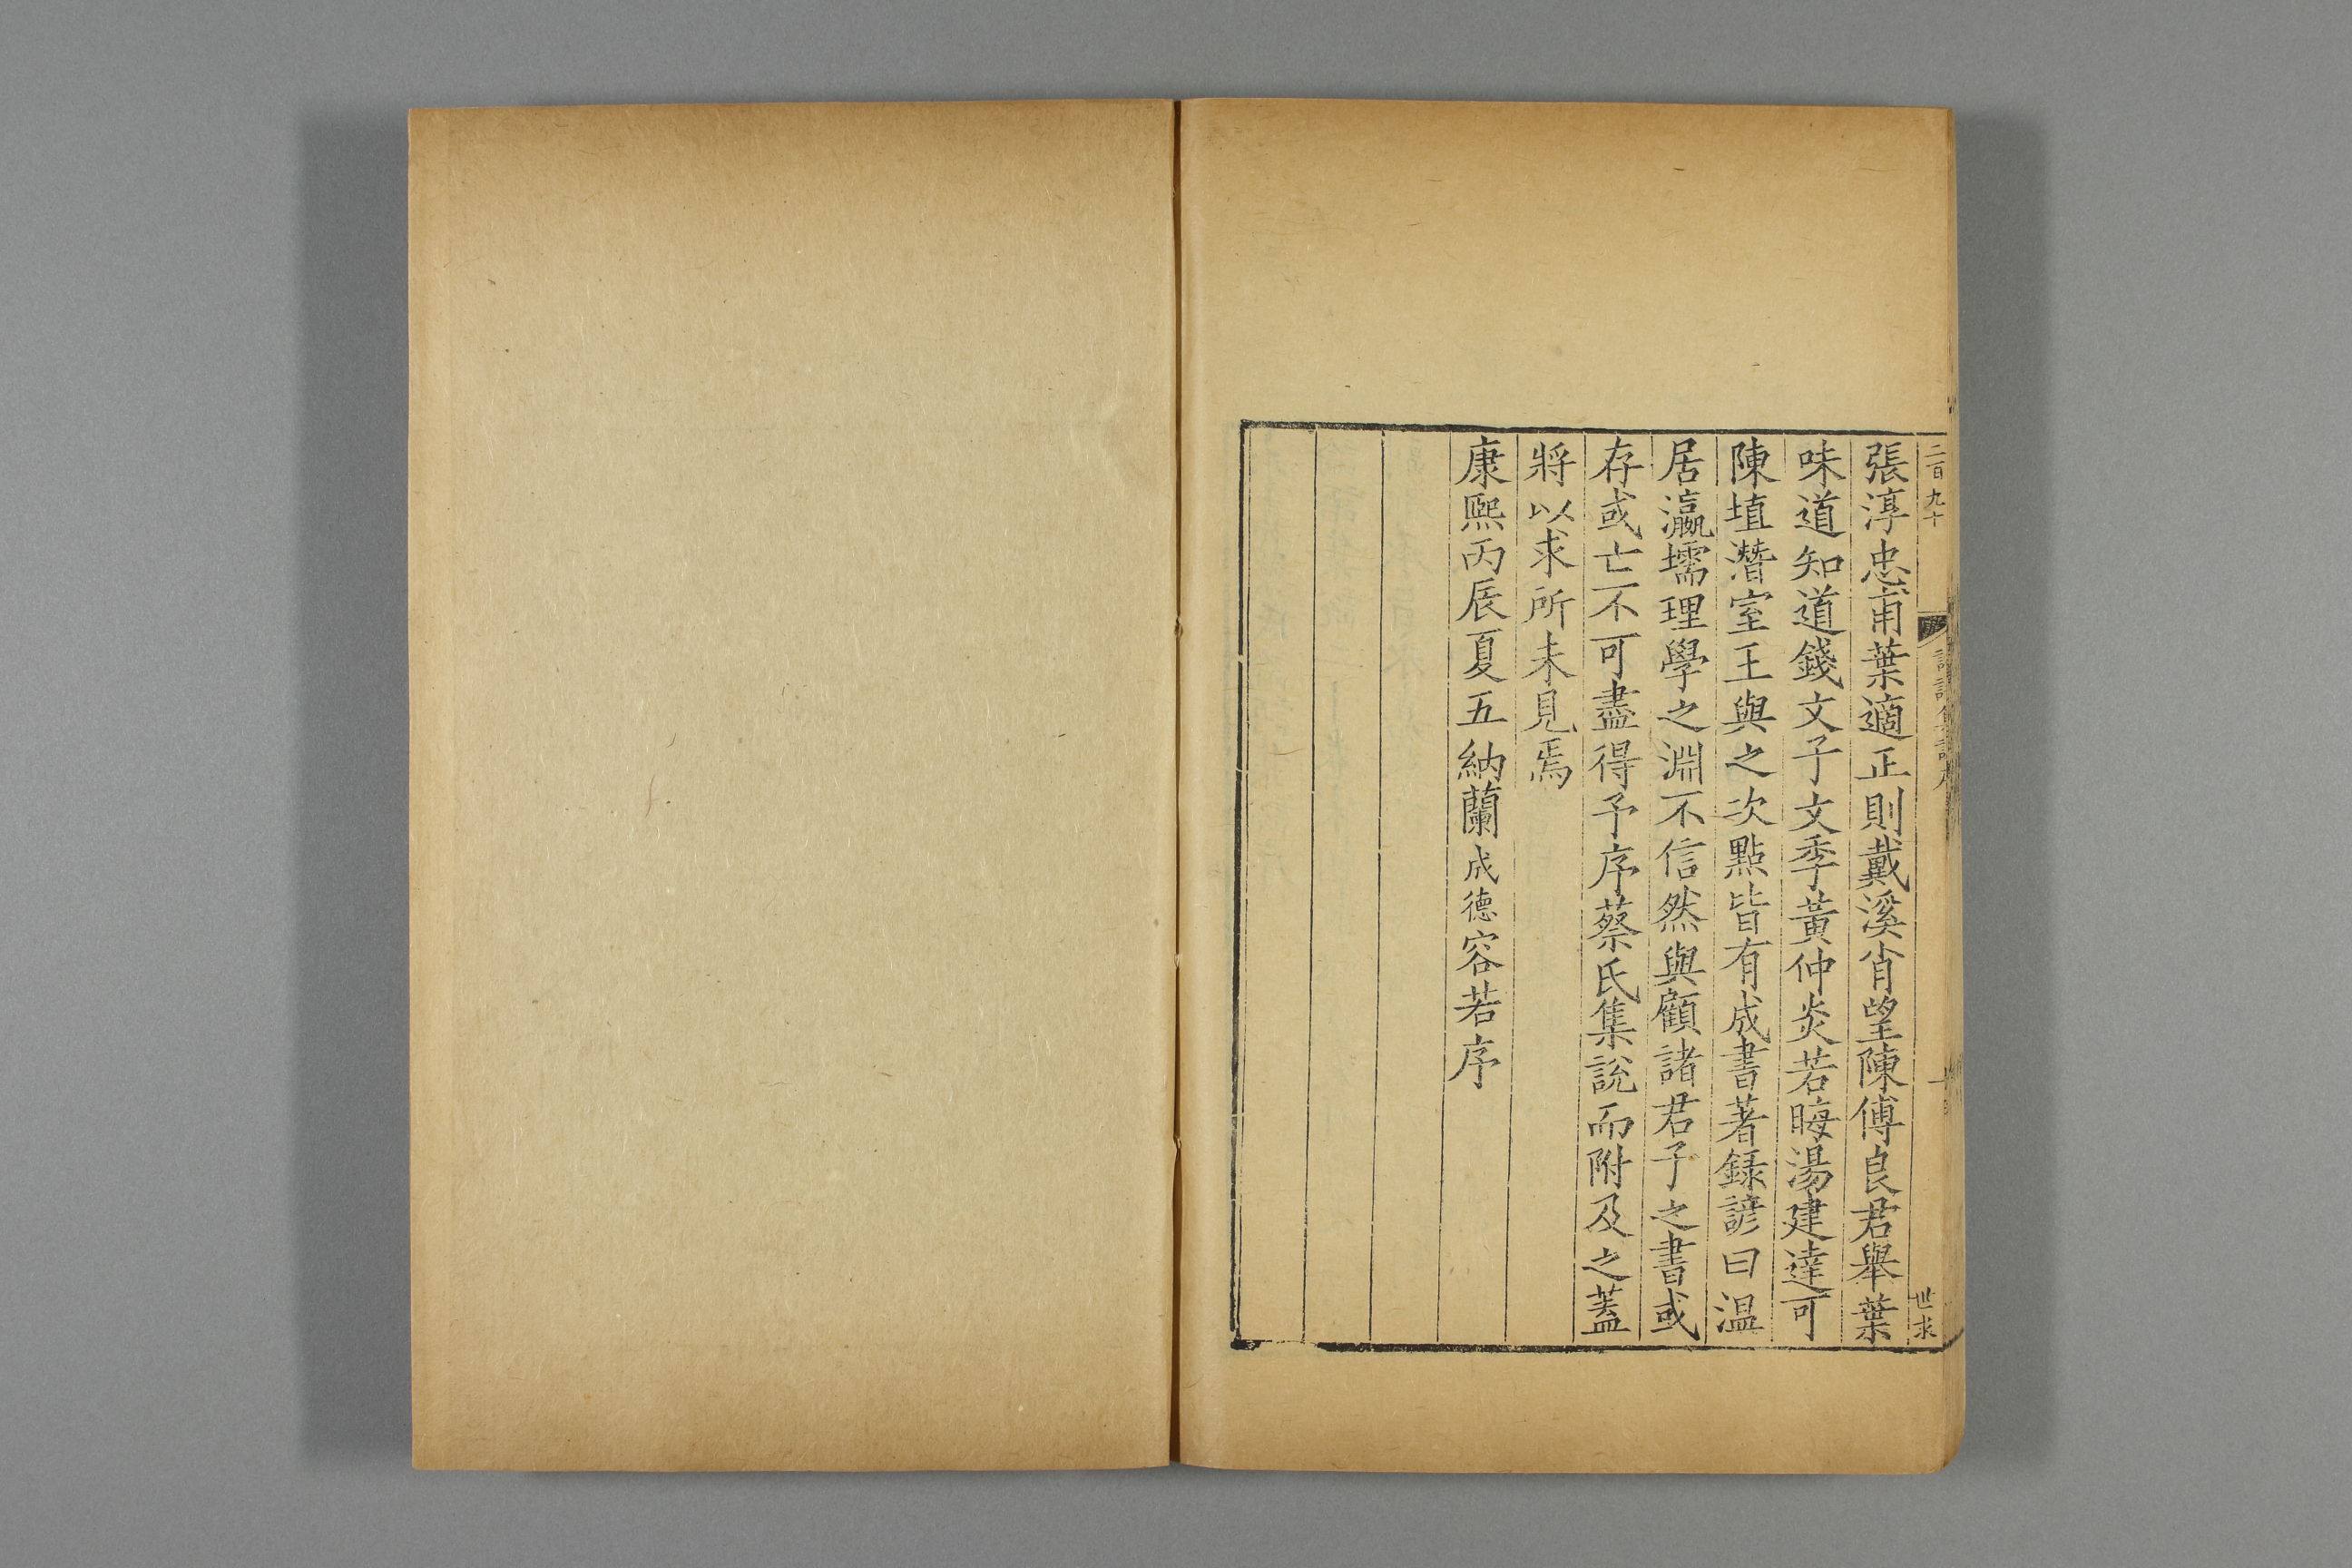 二百九十
世求
張淳忠甫葉適正則戴溪肖望陳傅良君舉葉
味道知道錢文子文季黃仲炎若晦湯建達可
陳埴潛室王與之次點皆有成書著録諺曰温
居瀛壖理學之淵不信然與顧諸君子之書或
存或亡不可盡得予序蔡氏集說而附及之蓋
將以求所未見焉
康熙丙辰夏五納蘭成德容若序